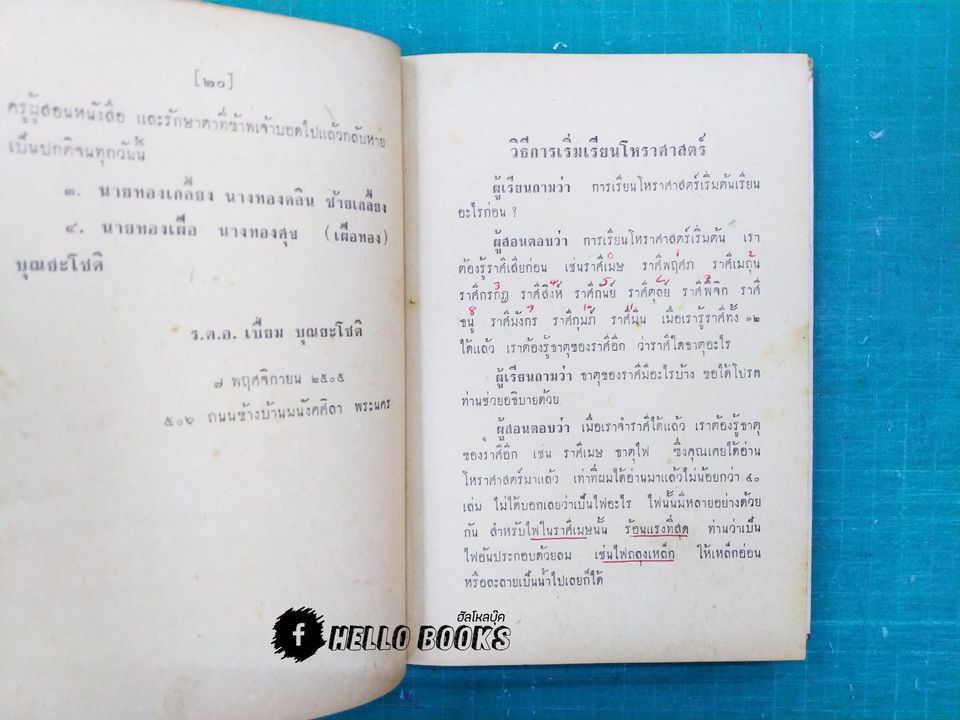 [๒๐]
ครูผู้สอนหนังสือ และรักษาตาที่ข้าพเจ้าบอดไปแล้วกลับหาย
เป็นปกติจนทุกวันนี้
๓. นายทองเกลี้ยง นางทองคลิน ช้ายเกลี้ยง
๔. นายทองเผื่อ นางทองศุข (เผื่อทอง)
บุณยะโชติ
ร.ต.อ. เปี่ยม บุณยะโชติ
๗ พฤศจิกายน ๒๕๐๕
๕๐๖ ถนนข้างบ้านมนังคศิลา พระนคร
วิธีการเริ่มเรียนโหราศาสตร์
ผู้เรียนถามว่า การเรียนโหราศาสตร์เริ่มต้นเรียน
อะไรก่อน ?
ผู้สอนตอบว่า การเรียนโหราศาสตร์เริ่มต้น เรา
ต้องรู้ราศีเสียก่อน เช่นราศีเมษ ราศีพฤศภ ราศีเมถุน
ราศีกรกฎ ราศีสิงห์ ราศีกันย์ ราศีตุลย์ ราศีพิจิก ราศี
ธนู ราศีมังกร ราศีกุมภ์ ราศีมีน เมื่อเรารู้ราศีทั้ง ๑๒
ได้แล้ว เราต้องรู้ธาตุของราศีอีก ว่าราศีใดธาตุอะไร
ผู้เรียนถามว่า ธาตุของราศีมีอะไรบ้าง ขอได้โปรด
ท่านช่วยอธิบายด้วย
ผู้สอนตอบว่า เมื่อเราจำราศีได้แล้ว เราต้องรู้ธาตุ
ของราศีอีก เช่น ราศีเมษ ธาตุไฟ ซึ่งคุณเคยได้อ่าน
โหราศาสตร์มาแล้ว เท่าที่ผมได้อ่านมาแล้วไม่น้อยกว่า ๕๐
เล่ม ไม่ได้บอกเลยว่าเป็นไฟอะไร ไฟนั้นมีหลายอย่างด้วย
กัน สำหรับไฟในราศีเมษนั้น ร้อนแรงที่สุด ท่านว่าเป็น
ไฟอันประกอบด้วยลม เช่นไฟถลุงเหล็ก ให้เหล็กอ่อน
หรือละลายเป็นน้ำไปเลยก็ได้
ฮัลโหลบุ๊ค
f HELLO BOOKS